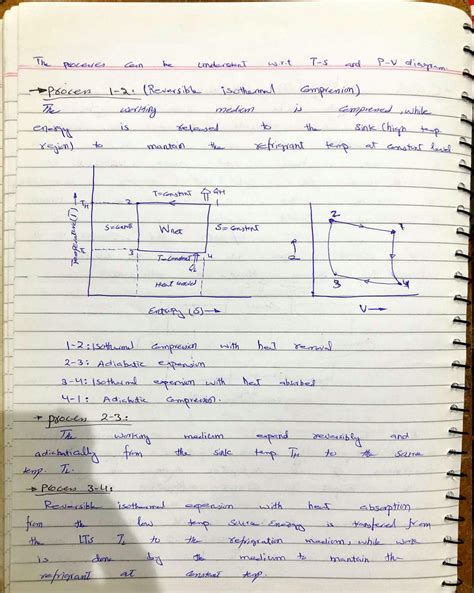 The processes can be understand w.r.t T-S and P-V diagram
→ process 1-2: (Reversible isothermal compression)
The working medium is compressed, while
energy is released to the sink (high temp
region) to mantain the refrigrant temp at constant level
T=constant QH
TH 2 1
Temperature(T) →
S=const Wnet S=constant
3 4
T=constant
QL
Heat
Entropy (S) →
2 1
3 4
V →
1-2: Isothermal compression with heat removal
2-3: Adiabatic expansion
3-4: Isothermal expansion with heat absorbed
4-1: Adiabatic Compression.
→ process 2-3:
The working medium expand reversibly and
adiabatically from the sink temp TH to the source
temp. TL.
→ Process 3-4:
Reversible isothermal expansion with heat absorption
from the low temp source Energy is transfered from
the TL to the refrigration medium, while work
is done by the medium to mantain the
refrigrant at constant temp.